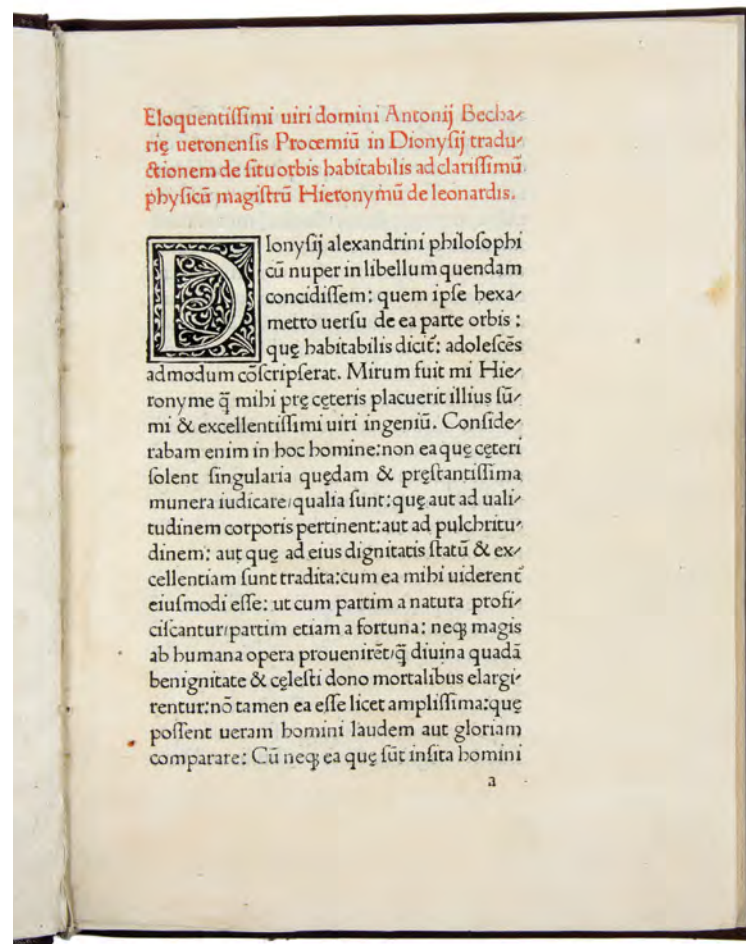 Eloquentiſſimi uiri domini Antonij Becha⸗
rię ueronenſis Prooemiū in Dionyſij tradu⸗
ctionem de ſitu orbis habitabilis ad clariſſimū
phyſicū magiſtrū Hieronymū de leonardis.
DIonyſij alexandrini philoſophi
cū nuper in libellum quendam
concidiſſem: quem ipſe hexa⸗
metro uerſu de ea parte orbis :
quę habitabilis dicit̃: adoleſcēs
admodum cōſcripſerat. Mirum fuit mi Hie⸗
ronyme q̄ mihi prę cęteris placuerit illius ſū⸗
mi & excellentiſſimi uiri ingeniū. Conſide⸗
rabam enim in hoc homine: non ea quę cęteri
ſolent ſingularia quędam & pręſtantiſſima
munera iudicare/qualia ſunt: quę aut ad uali⸗
tudinem corporis pertinent: aut ad pulchritu⸗
dinem: aut quę ad eius dignitatis ſtatū & ex⸗
cellentiam ſunt tradita: cum ea mihi uiderent̃
eiuſmodi eſſe: ut cum partim a natura profi⸗
ciſcantur/partim etiam a fortuna: neqꝫ magis
ab humana opera prouenirēt/q̄ diuina quadā
benignitate & cęleſti dono mortalibus elargi⸗
rentur: nō tamen ea eſſe licet ampliſſima: quę
poſſent ueram homini laudem aut gloriam
comparare: Cū neqꝫ ea quę ſūt inſita homini
a